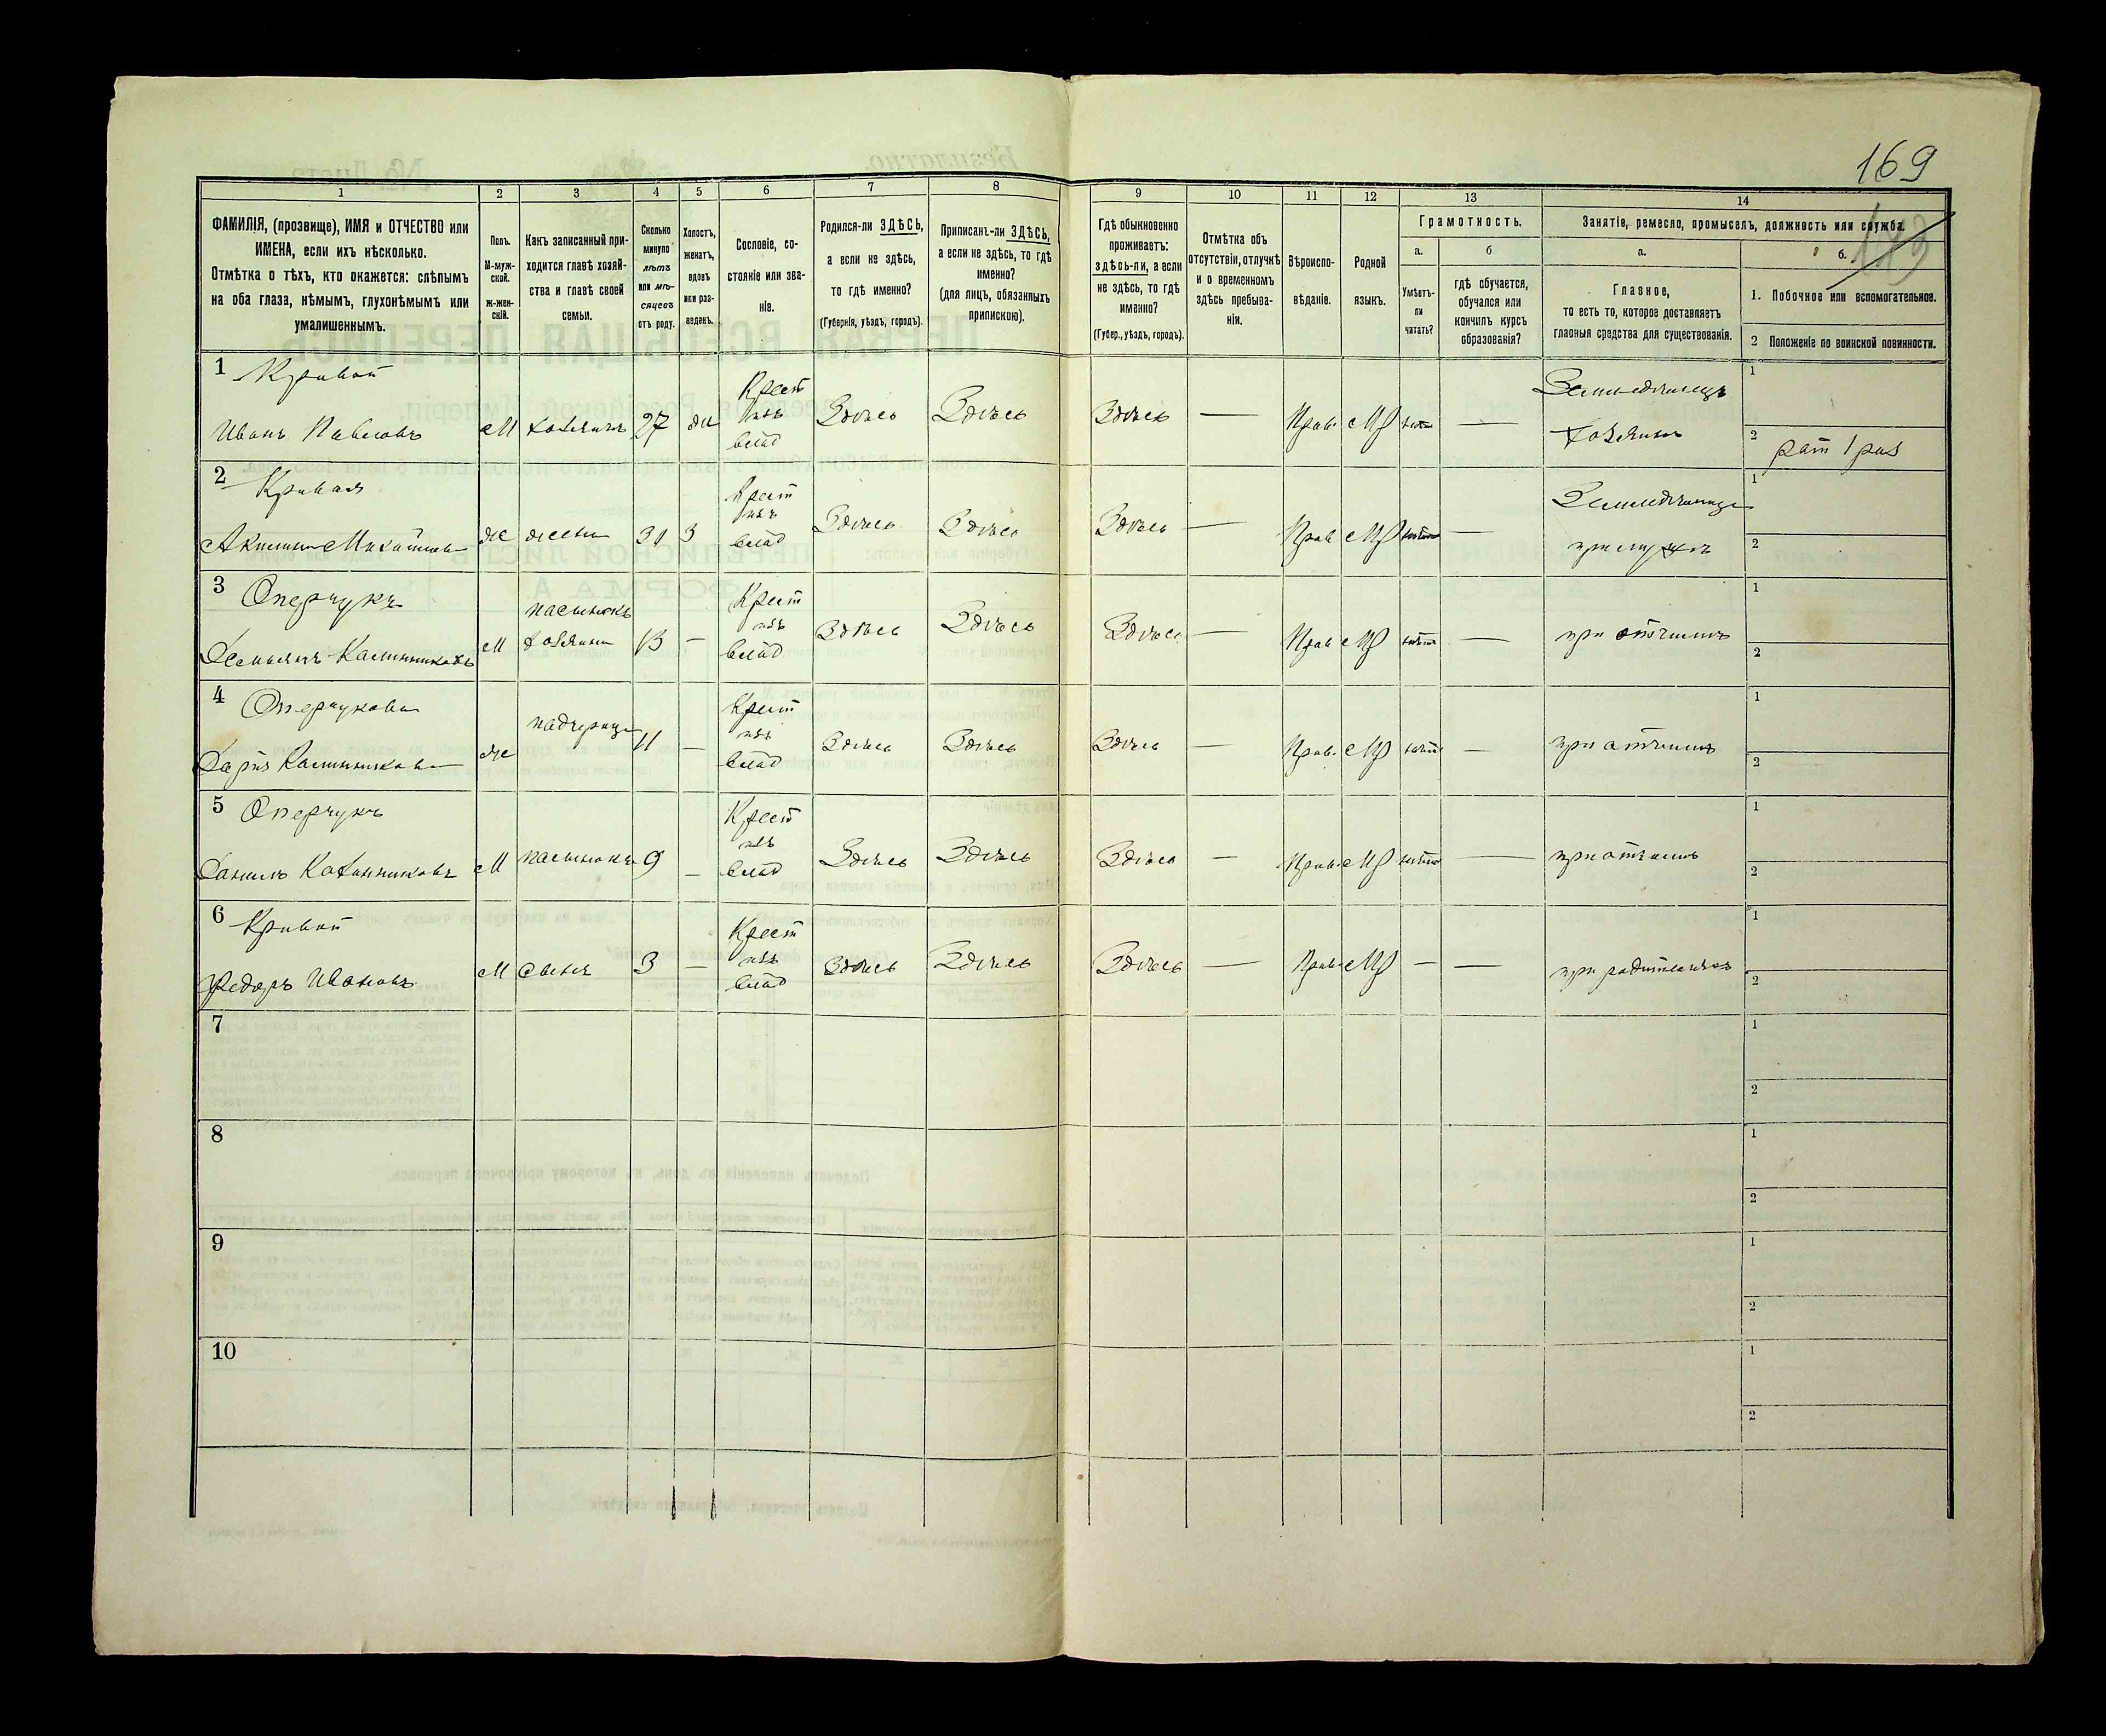 169
173
1
2
3
4
5
6
7
8
9
10
11
12
13
14
ФАМИЛІЯ, (прозвище), ИМЯ и ОТЧЕСТВО или
ИМЕНА, если ихъ нѣсколько.
Отмѣтка о тѣхъ, кто окажется: слѣпымъ
на оба глаза, нѣмымъ, глухонѣмымъ или
умалишеннымъ.
Полъ.
М-муж-
ской.
ж-жен-
скій.
Какъ записанный при-
ходится главѣ хозяй-
ства и главѣ своей
семьи.
Сколько
минуло
лѣтъ
или мѣ-
сяцевъ
отъ роду.
Холостъ,
женатъ,
вдовъ
или раз-
веденъ.
Сословіе, со-
стояніе или зва-
ніе.
Родился-ли ЗДѢСЬ,
а если не здѣсь,
то гдѣ именно?
(Губернія, уѣздъ, городъ).
Приписанъ-ли ЗДѢСЬ,
а если не здѣсь, то гдѣ
именно?
(для лицъ, обязанныхъ
припискою).
Гдѣ обыкновенно
проживаетъ:
здѣсь-ли, а если
не здѣсь, то гдѣ
именно?
(Губер., уѣздъ, городъ).
Отмѣтка объ
отсутствіи, отлучкѣ
и о временномъ
здѣсь пребыва-
ніи.
Вѣроиспо-
вѣданіе.
Родной
языкъ.
Грамотность.
а.
Умѣетъ-
ли
читать?
б
гдѣ обучается,
обучался или
кончилъ курсъ
образованія?
Занятіе, ремесло, промыселъ, должность или служба.
а.
Главное,
то есть то, которое доставляетъ
главныя средства для существованія.
б.
1. Побочное или вспомогательное.
2 Положеніе по воинской повинности.
1 Кривой
Иванъ Павловъ М хозяинъ 27 жн Крест изъ влад Здѣсь Здѣсь Здѣсь — Прав. Мр нѣтъ — Земледѣлецъ хозяинъ 1
2 рат 1 раз
2 Кривая
Акилина ж жена 31 З Крест изъ влад Здѣсь Здѣсь Здѣсь — Прав Мр нѣтъ — при мужѣ 1
2
3 Оперчукъ
Демьянъ Калинниковъ М пасынокъ хозяина 13 — Крест изъ влад Здѣсь Здѣсь Здѣсь — Прав Мр нѣтъ — при отчимѣ 1
2
4 Оперчукова
Дарія Калинникова ж падчерица 11 — Крест изъ влад Здѣсь Здѣсь Здѣсь — Прав. Мр нѣтъ — при отчимѣ 1
2
5 Оперчукъ
Данило Калинниковъ М пасынокъ 9 — Крест изъ влад Здѣсь Здѣсь Здѣсь — Прав. Мр нѣтъ — при отчимѣ 1
2
6 Кривой
Федоръ Ивановъ М сынъ 3 — Крест изъ влад Здѣсь Здѣсь Здѣсь — Прав. Мр — — при родителяхъ 1
2
7 1
2
8 1
2
9 1
2
10 1
2